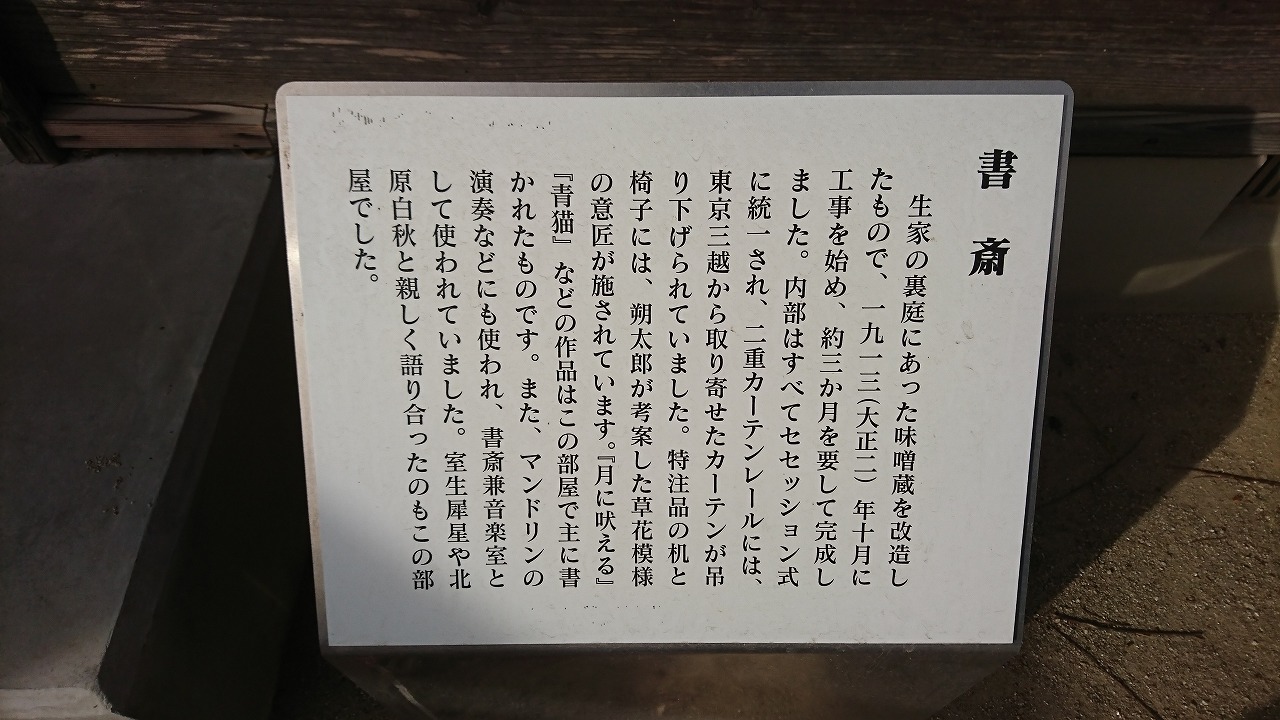 書斎
生家の裏庭にあった味噌蔵を改造し
たもので、一九一三(大正二)年十月に
工事を始め、約三か月を要して完成し
ました。内部はすべてセセッション式
に統一され、二重カーテンレールには、
東京三越から取り寄せたカーテンが吊
り下げられていました。特注品の机と
椅子には、朔太郎が考案した草花模様
の意匠が施されています。『月に吠える』
『青猫』などの作品はこの部屋で主に書
かれたものです。また、マンドリンの
演奏などにも使われ、書斎兼音楽室と
して使われていました。室生犀星や北
原白秋と親しく語り合ったのもこの部
屋でした。